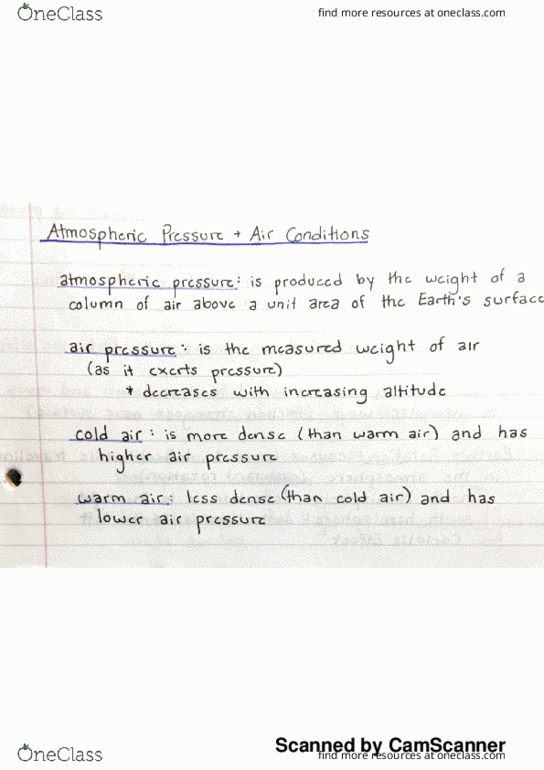 OneClass
find more resources at oneclass.com
Atmospheric Pressure + Air Conditions
atmospheric pressure: is produced by the weight of a
column of air above a unit area of the Earth's surface
air pressure: is the measured weight of air
(as it exerts pressure)
* decreases with increasing altitude
cold air: is more dense (than warm air) and has
higher air pressure
warm air: less dense (than cold air) and has
lower air pressure
Scanned by CamScanner
OneClass
find more resources at oneclass.com